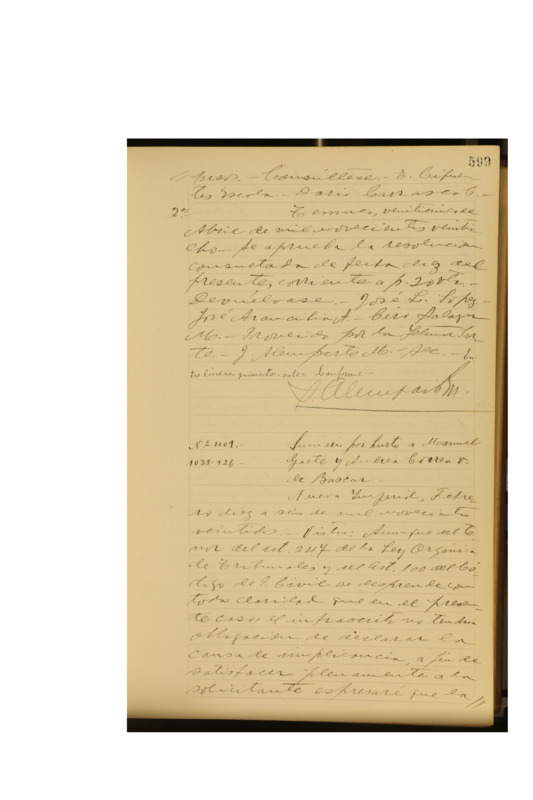 599
preso. - Consúltese. - E. Cifuen
tes Escola. - Dario Cruzascob. -
2ª Temuco, veinticinco de
Abril de mil novecientos veintio
cho. - Se aprueba la resolucion
consultada de fecha diez del
presente, corriente a f. 20 vta. -
Devuélvase. - José L. Lopez. -
José Arancibia A. - Ciro Salazar
M. - Proveido por la Iltma. Cor
te. - J Alemparte M. - Sec. -
Conforme. -
J. Alemparte M.
N.º 2409. - Sumario por hurto a Manuel
1038-926. - Gaete y Correa v.
de Bascur. -
Nueva Imperial, Febre
ro diez a seis de mil novecientos
veintidos. - Vistos: Aunque del te
nor del art. 247 de la Ley Orgánica
de Tribunales y del art. 100 del Có
digo de P. Civil se desprende con
toda claridad que en el presen
te caso el infrascrito no tendria
obligacion de declarar la
causa de implicancia, a fin de
satisfacer plenamente a la
solicitante espresaré que la